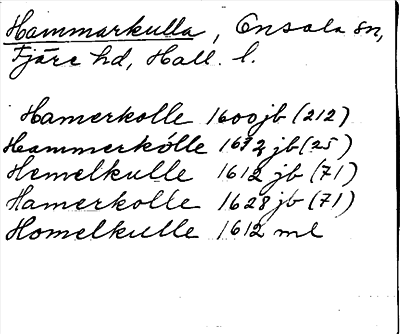 Hammarkulla, Onsala sn,
Fjäre hd, Hall. l.
Hamerkolle 1600 jb (212)
Hammerkölle 1612 jb (25)
Hemelkulle 1612 jb (71)
Hamerkolle 1628 jb (71)
Homelkulle 1612 ml